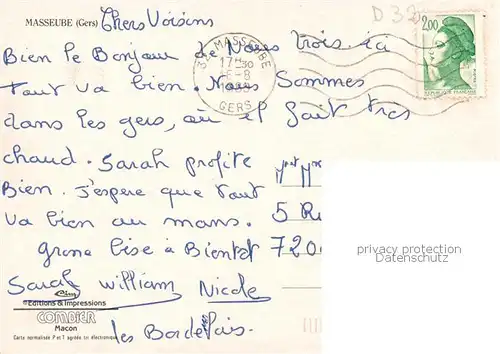 MASSEUBE (Gers)
Chers Voisins
D 32
Bien le Bonjour de Nous trois. ici
tout va bien. Nous Sommes
dans les gers, ou il fait tres
chaud. Sarah profite
Bien. J'espere que tout
va bien au mans.
grosse bise à Bientot
Sarah William Nicole
les Bordelais.
32 MASSEUBE
17H30
GERS
2,00
REPUBLIQUE FRANÇAISE
5 Ru
7200
privacy protection
Datenschutz
Editions & Impressions
COMBIER
Macon
Carte normalisée P et T agréée tri électronique